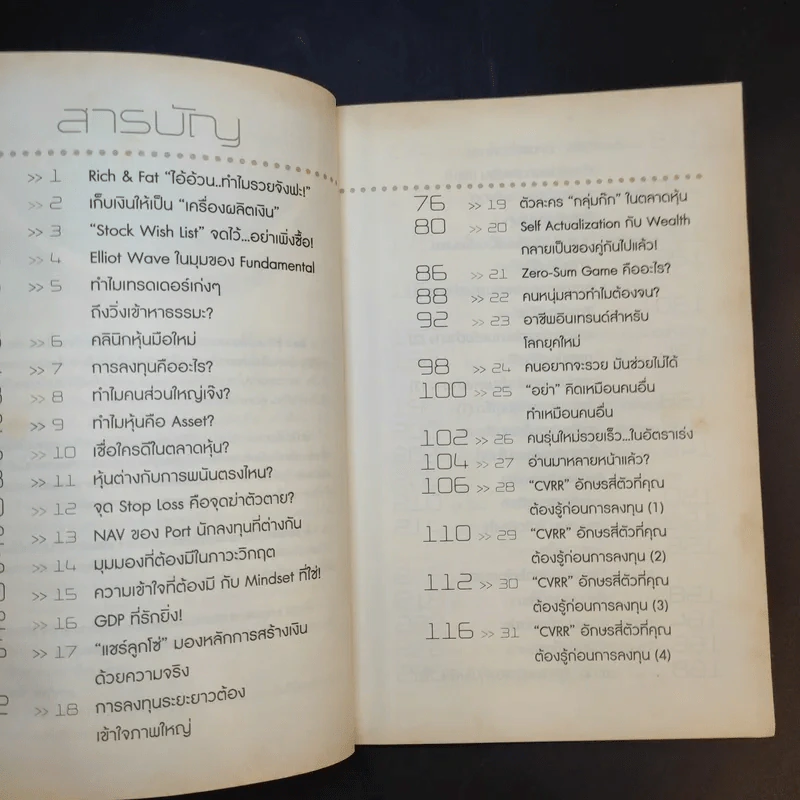 สารบัญ
>> 1 Rich & Fat “ไอ้อ้วน..ทำไมรวยจังฟะ!”
>> 2 เก็บเงินให้เป็น “เครื่องผลิตเงิน”
>> 3 “Stock Wish List” จดไว้...อย่าเพิ่งซื้อ!
>> 4 Elliot Wave ในมุมของ Fundamental
>> 5 ทำไมเทรดเดอร์เก่งๆ
ถึงวิ่งเข้าหาธรรมะ?
>> 6 คลินิกหุ้นมือใหม่
>> 7 การลงทุนคืออะไร?
>> 8 ทำไมคนส่วนใหญ่เจ๊ง?
>> 9 ทำไมหุ้นคือ Asset?
>> 10 เชื่อใครดีในตลาดหุ้น?
>> 11 หุ้นต่างกับการพนันตรงไหน?
>> 12 จุด Stop Loss คือจุดฆ่าตัวตาย?
>> 13 NAV ของ Port นักลงทุนที่ต่างกัน
>> 14 มุมมองที่ต้องมีในภาวะวิกฤต
>> 15 ความเข้าใจที่ต้องมี กับ Mindset ที่ใช่!
>> 16 GDP ที่รักยิ่ง!
>> 17 “แชร์ลูกโซ่” มองหลักการสร้างเงิน
ด้วยความจริง
>> 18 การลงทุนระยะยาวต้อง
เข้าใจภาพใหญ่
76 >> 19 ตัวละคร “กลุ่มกิ๊ก” ในตลาดหุ้น
80 >> 20 Self Actualization กับ Wealth
กลายเป็นของคู่กันไปแล้ว!
86 >> 21 Zero-Sum Game คืออะไร?
88 >> 22 คนหนุ่มสาวทำไมต้องจน?
92 >> 23 อาชีพอินเทรนด์สำหรับ
โลกยุคใหม่
98 >> 24 คนอยากจะรวย มันช่วยไม่ได้
100 >> 25 “อย่า” คิดเหมือนคนอื่น
ทำเหมือนคนอื่น
102 >> 26 คนรุ่นใหม่รวยเร็ว...ในอัตราเร่ง
104 >> 27 อ่านมาหลายหน้าแล้ว?
106 >> 28 “CVRR” อักษรสี่ตัวที่คุณ
ต้องรู้ก่อนการลงทุน (1)
110 >> 29 “CVRR” อักษรสี่ตัวที่คุณ
ต้องรู้ก่อนการลงทุน (2)
112 >> 30 “CVRR” อักษรสี่ตัวที่คุณ
ต้องรู้ก่อนการลงทุน (3)
116 >> 31 “CVRR” อักษรสี่ตัวที่คุณ
ต้องรู้ก่อนการลงทุน (4)